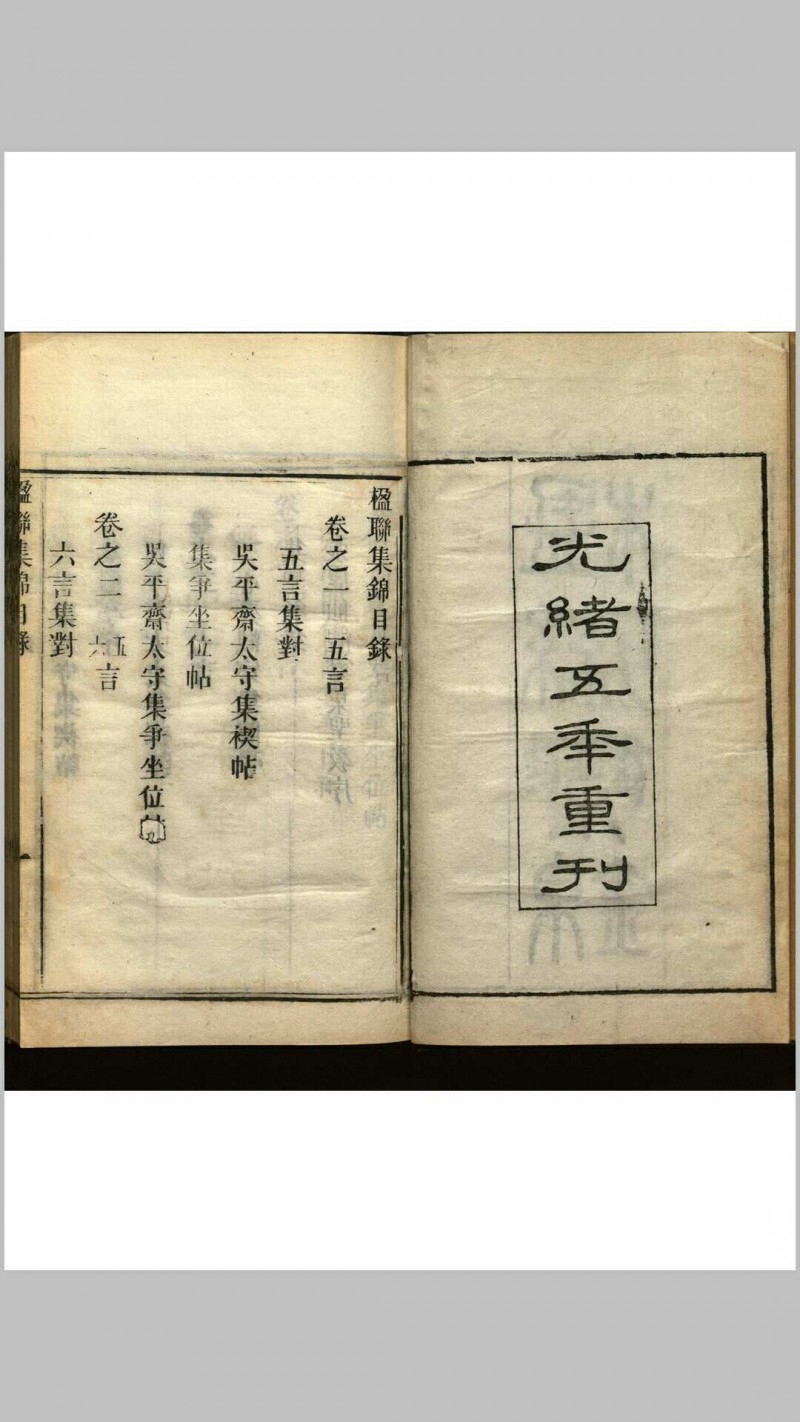 光緒五年重刊
楹聯集錦目錄
卷之一 五言
五言集對
吳平齋太守集禊帖
集爭坐位帖
吳平齋太守集爭坐位
卷之二 五六言
六言集對
楹聯集錦目錄